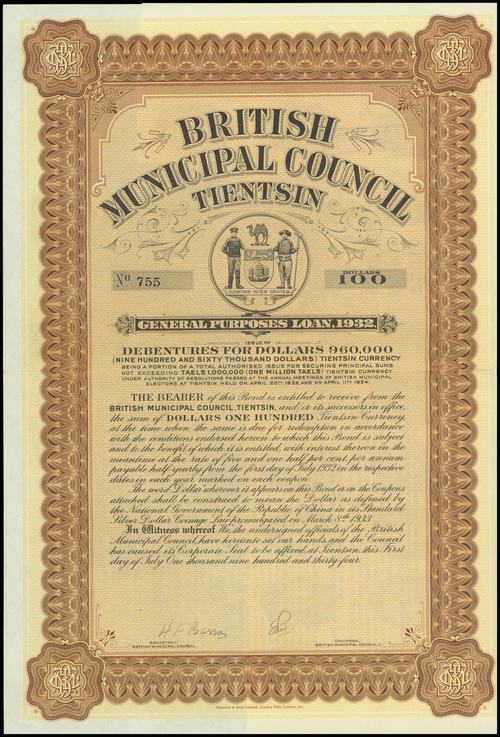 BRITISH
MUNICIPAL COUNCIL
TIENTSIN
No 755
DOLLARS
100
COMITAS INTER GENTES
GENERAL PURPOSES LOAN, 1932.
ISSUE OF
DEBENTURES FOR DOLLARS 960,000
(NINE HUNDRED AND SIXTY THOUSAND DOLLARS) TIENTSIN CURRENCY
BEING A PORTION OF A TOTAL AUTHORISED ISSUE FOR SECURING PRINCIPAL SUMS
NOT EXCEEDING TAELS 1,000,000 (ONE MILLION TAELS) TIENTSIN CURRENCY
UNDER AUTHORITY OF RESOLUTIONS PASSED AT THE ANNUAL MEETINGS OF BRITISH MUNICIPAL
ELECTORS AT TIENTSIN HELD ON APRIL 20TH 1932, AND ON APRIL 11TH 1934.
THE BEARER of this Bond is entitled to receive from the
BRITISH MUNICIPAL COUNCIL, TIENTSIN, and/or its successors in office,
the sum of DOLLARS ONE HUNDRED Tientsin Currency,
at the time when the same is due for redemption in accordance
with the conditions endorsed hereon to which this Bond is subject
and to the benefit of which it is entitled, with interest thereon in the
meantime at the rate of five and one half per cent. per annum
payable half-yearly from the first day of July 1932 on the respective
dates in each year marked on each coupon.
The word Dollar wherever it appears on this Bond or on the Coupons
attached shall be construed to mean the Dollar as defined by
the National Government of the Republic of China in its Standard
Silver Dollar Coinage Law promulgated on March 8th 1933.
In Witness whereof We, the undersigned officials of the British
Municipal Council, have hereunto set our hands, and the Council
has caused its Corporate Seal to be affixed, at Tientsin, this First
day of July One thousand nine hundred and thirty-four.
SECRETARY,
BRITISH MUNICIPAL COUNCIL.
CHAIRMAN,
BRITISH MUNICIPAL COUNCIL.
Waterlow & Sons Limited, London Wall, London, E.C.